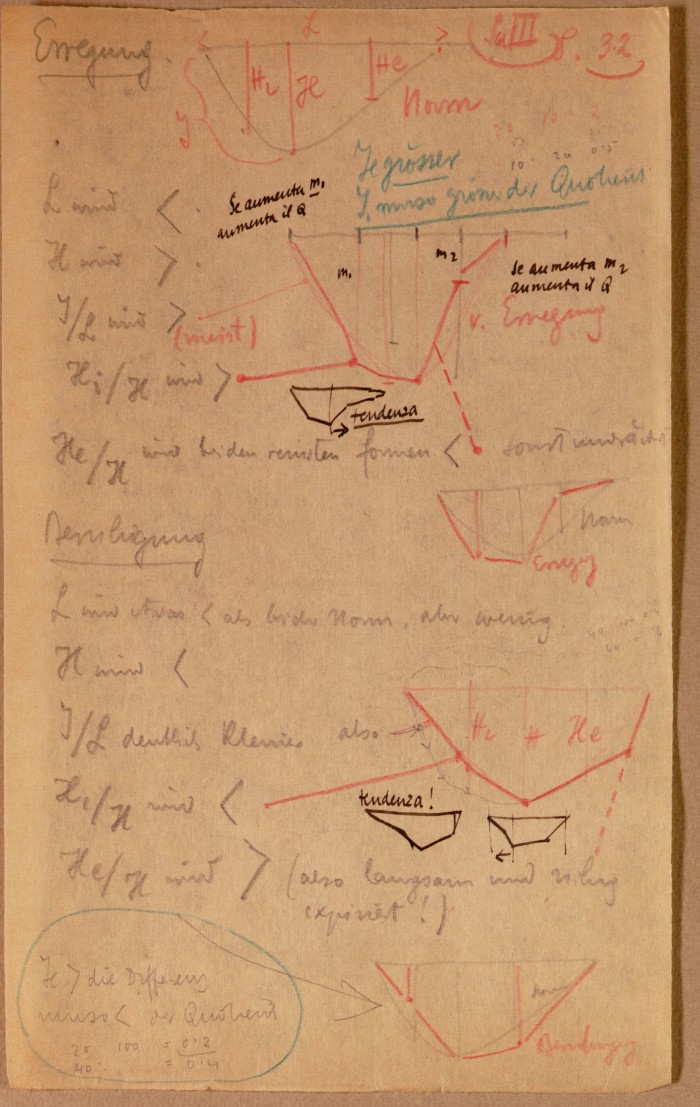 Erregung.
L
?
Sa III
S. 3.2
Hi
H
He
J
Norm
Je grösser
J, umso grösser der Quotient
L wird <
Se aumenta m1
aumenta il Q
H wird >
m1
m2
Se aumenta m2
aumenta il Q
J/L wird >
(meist)
v. Erregung
Hi/H wird >
tendenza
He/H wird bei den reinsten Formen < sonst
Norm
Erregg
Beruhigung
L wird etwas < als bei der Norm, aber wenig.
H wird <
J/L deutlich kleiner also
Hi
H
He
Hi/H wird <
tendenza!
He/H wird > (also langsam und ruhig
expiriert!)
H > die Differenz
umso < der Quotient
20 100 = 0.2
40 = 0.4
Norm
Beruhigg